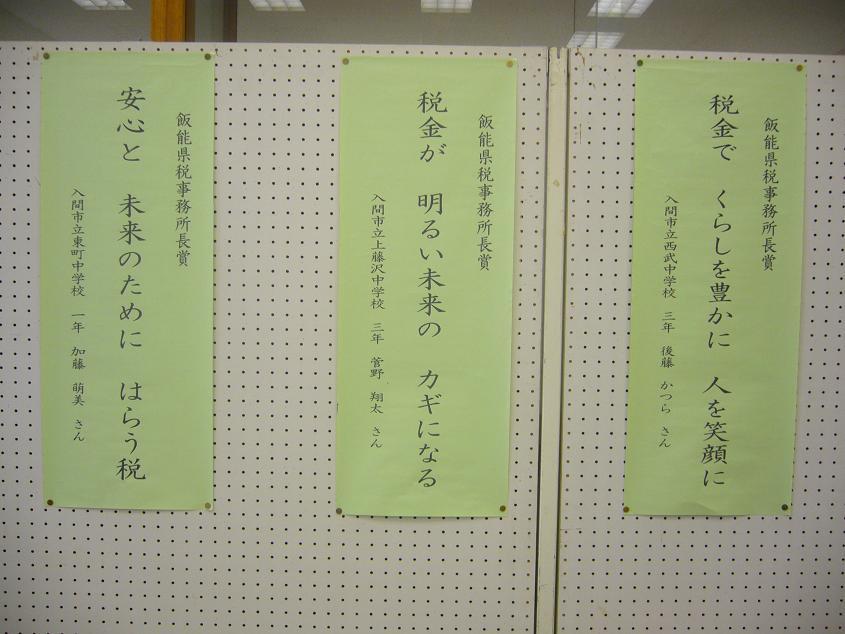 飯能県税事務所長賞
税金で くらしを豊かに 人を笑顔に
入間市立西武中学校 三年 後藤 かつら さん
飯能県税事務所長賞
税金が 明るい未来の カギになる
入間市立上藤沢中学校 三年 菅野 翔太 さん
飯能県税事務所長賞
安心と 未来のために はらう税
入間市立東町中学校 一年 加藤 萌美 さん